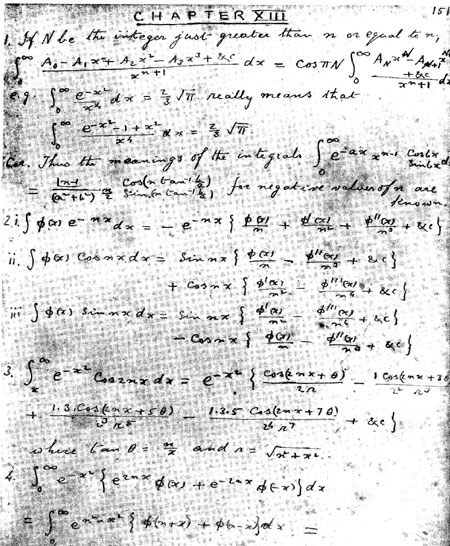 CHAPTER XIII 151
1. If N be the integer just greater than n or equal to n,
∫₀^∞ (A₀ - A₁x + A₂x² - A₃x³ + &c)/x^{n+1} dx = Cos πN ∫₀^∞ (A_N x^N - A_{N+1} + &c)/x^{n+1} d
e.g. ∫₀^∞ e^{-x²}/x⁴ dx = 2/3 √π really means that
∫₀^∞ (e^{-x²} - 1 + x²)/x⁴ dx = 2/3 √π.
Cor. Thus the meanings of the integrals ∫₀^∞ e^{-ax} x^{n-1} Cos bx Sin bx d
= |n-1 / (a²+b²)^{n/2} Cos(n tan⁻¹ b/a) Sin(n tan⁻¹ b/a) for negative values of n are
known.
2. i. ∫ φ(x) e^{-nx} dx = - e^{-nx} { φ(x)/n + φ'(x)/n² + φ''(x)/n³ + &c }
ii. ∫ φ(x) Cos nx dx = Sin nx { φ(x)/n - φ''(x)/n³ + &c }
+ Cos nx { φ'(x)/n² - φ'''(x)/n⁴ + &c }
iii ∫ φ(x) Sin nx dx = Sin nx { φ'(x)/n² - φ'''(x)/n⁴ + &c }
- Cos nx { φ(x)/n - φ''(x)/n³ + &c }
3. ∫_x^∞ e^{-x²} Cos 2nx dx = e^{-x²} { Cos(2nx + θ)/2r - 1 Cos(2nx + 3θ/2² r³
+ 1.3. Cos(2nx + 5θ)/2³ r⁵ - 1.3.5 Cos(2nx + 7θ)/2⁴ r⁷ + &c }
where tan θ = n/x and r = √(n² + x²).
4. ∫₀^∞ e^{-x²} { e^{2nx} φ(x) + e^{-2nx} φ(-x) } dx
= ∫₀^∞ e^{n²-x²} { φ(n+x) + φ(n-x) } dx =